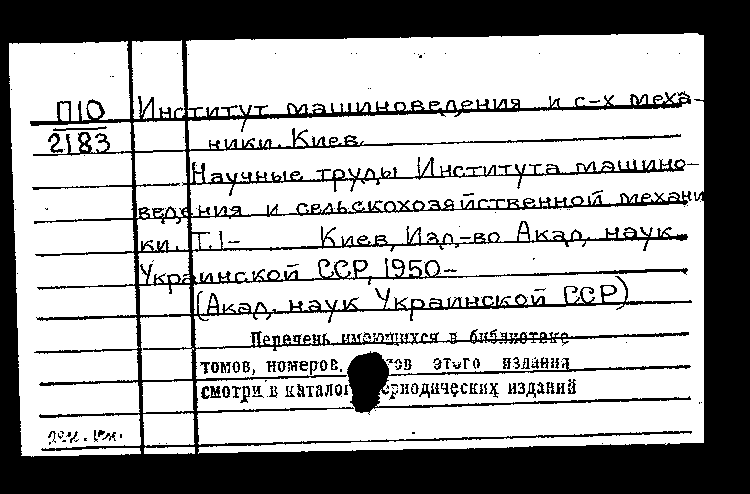 П10 Институт машиноведения и с-х меха-
2183 ники. Киев.
Научные труды Института машино-
ведения и сельскохозяйственной механи
ки. Т.1- Киев, Изд-во Акад. наук
Украинской ССР, 1950-
(Акад. наук Украинской ССР)
Перечень имеющихся в библиотеке
томов, номеров. этого издания
смотри в каталоге периодических изданий